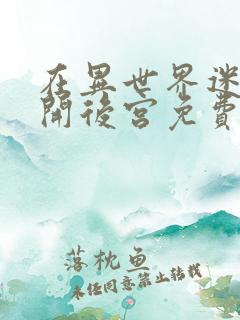 在異世界迷
開後宮免費
落枕鱼
未经同意禁止转载